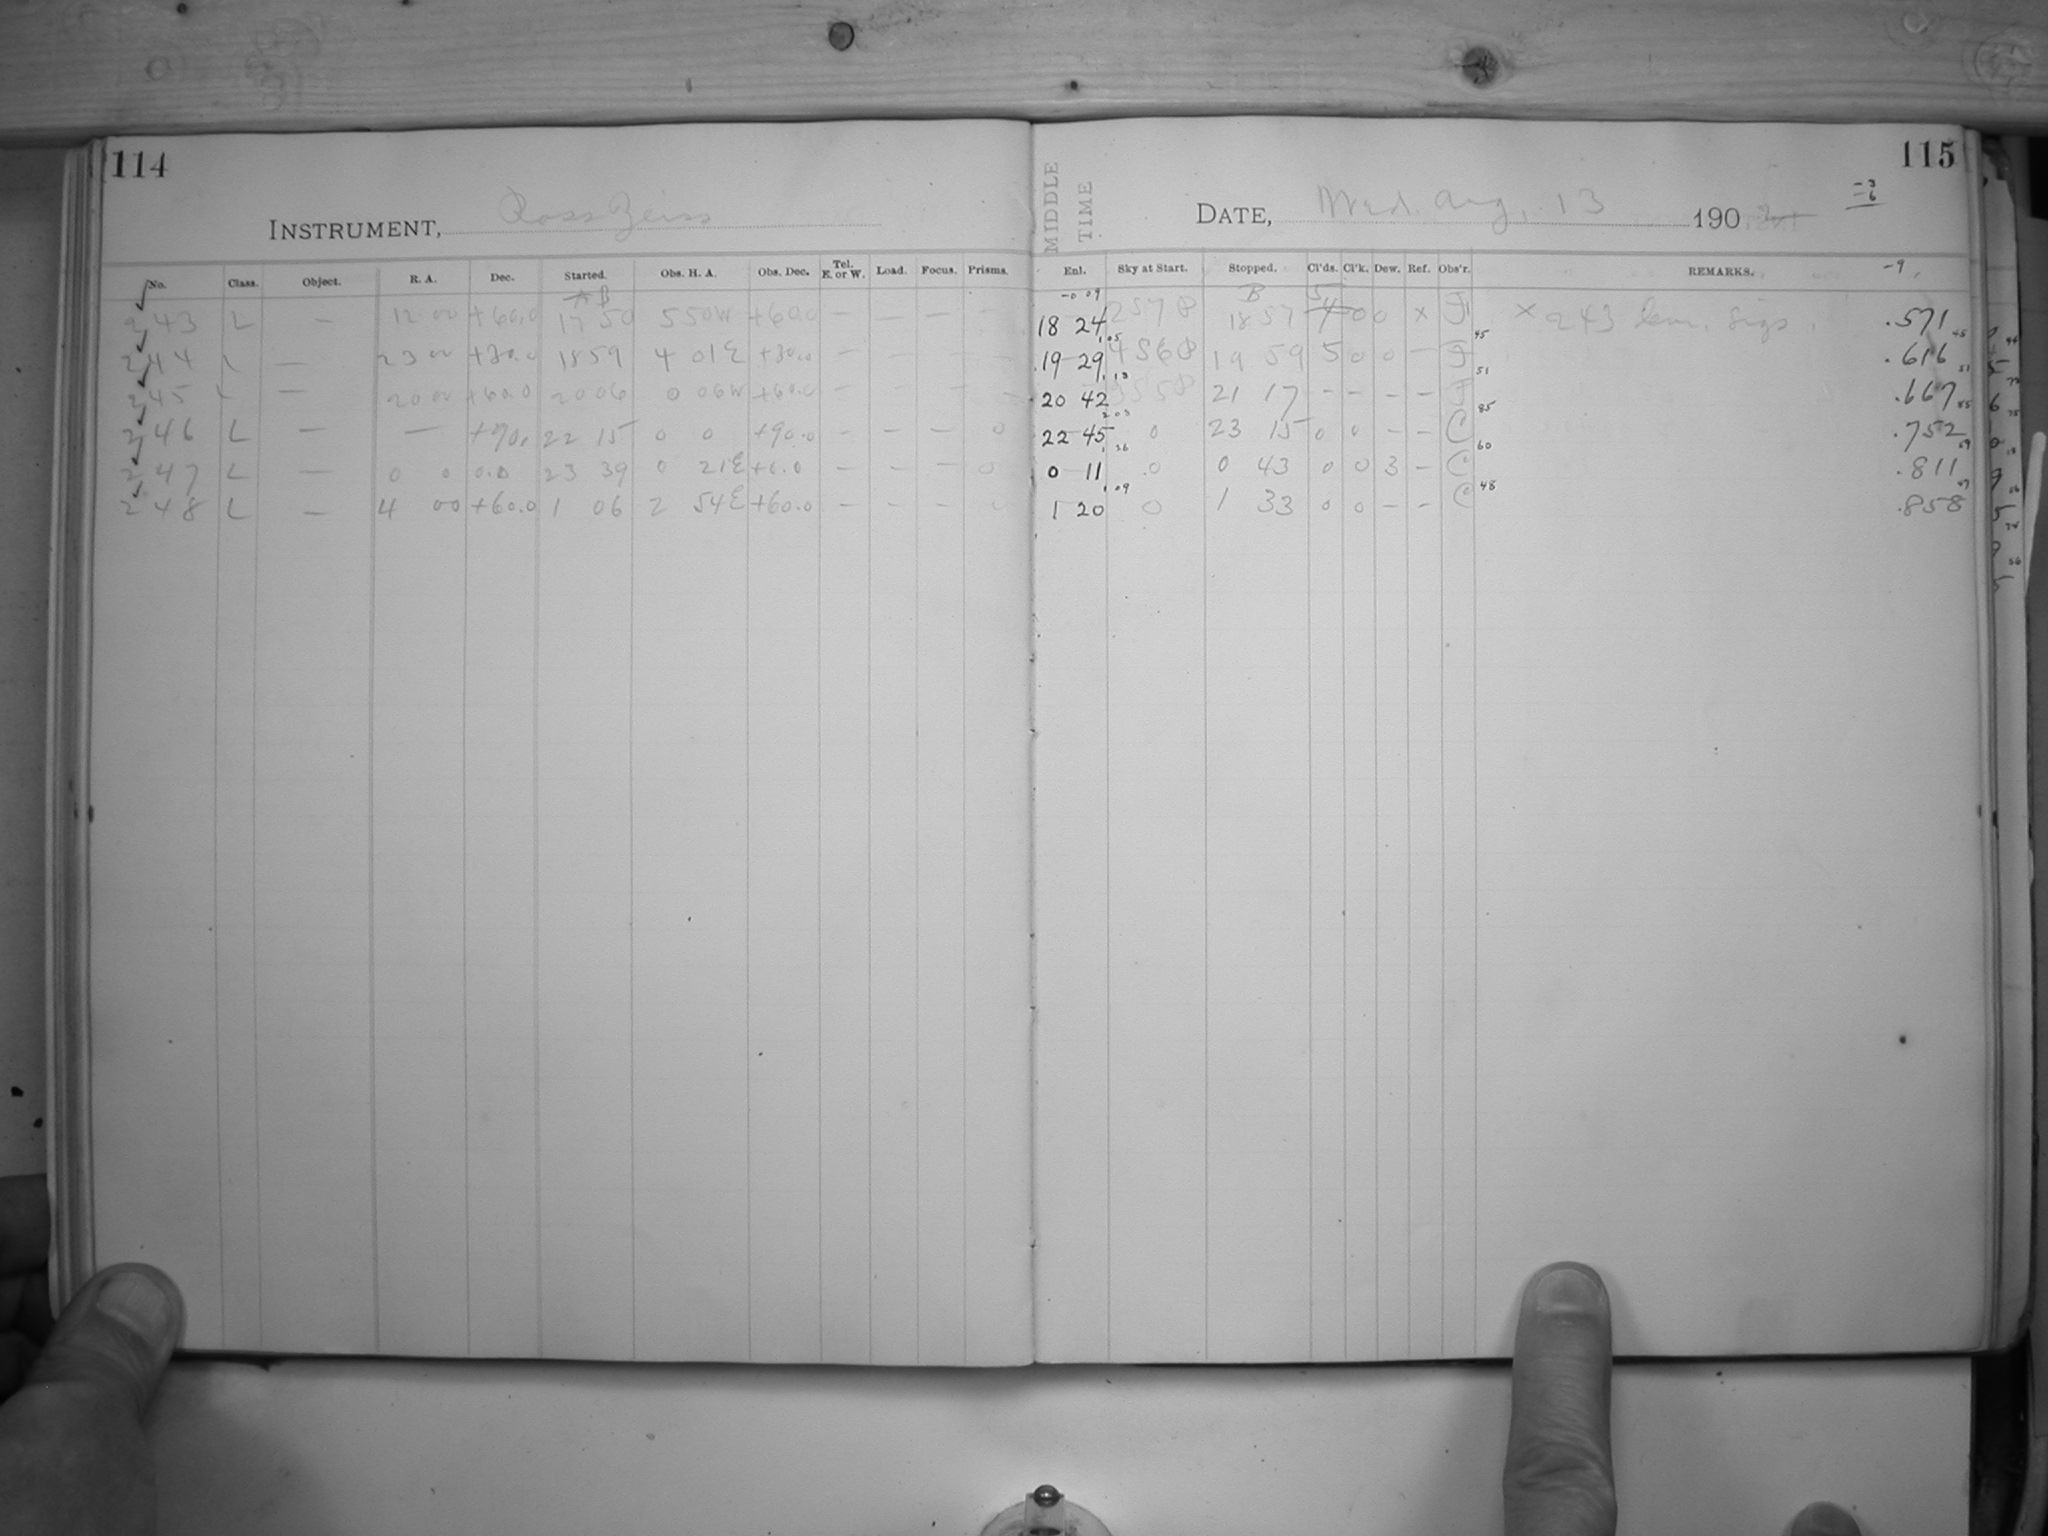 114
INSTRUMENT, Ross Zeiss
No. Class. Object. R. A. Dec. Started. Obs. H. A. Obs. Dec. Tel. E. or W. Load. Focus. Prisms.
243 L — 12 00 +60.0 17 50 5 50W +60.0 — — — —
244 L — 23 00 +30.0 18 59 4 01E +30.0 — — — —
245 L — 20 00 +60.0 20 06 0 06W +60.0 — — — —
246 L — — +90. 22 15 0 0 +90.0 — — — 0
247 L — 0 0 0.0 23 39 0 21E +0.0 — — — 0
248 L — 4 00 +60.0 1 06 2 54E +60.0 — — — 0
115
MIDDLE TIME
DATE, Wed. Aug. 13 190
-3
-6
Enl. Sky at Start. Stopped. Cl'ds. Cl'k. Dew. Ref. Obs'r. REMARKS. -9
18 24 257 B 18 57 5 0 0 x F x 243 .571
19 29 456 B 19 59 5 0 0 — F .616
20 42 21 17 — — — — F .667
22 45 0 23 15 0 0 — — C .752
0 11 0 0 43 0 0 3 — C .811
1 20 0 1 33 0 0 — — C .858